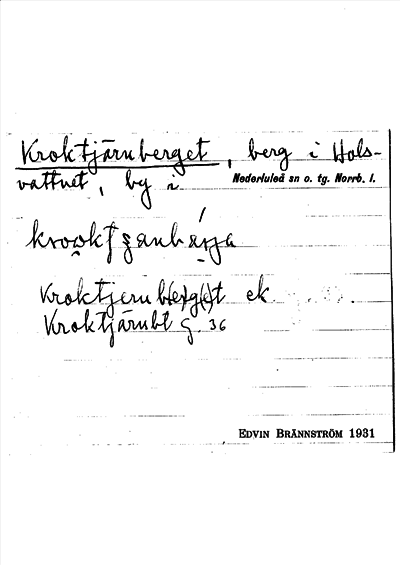 Kroktjärnberget, berg i Hols-
vattnet, by i Nederluleå sn o. tg. Norrb. l.
Kroktjernb(er)g(e)t ek
Kroktjärnbt G. 36
EDVIN BRÄNNSTRÖM 1931